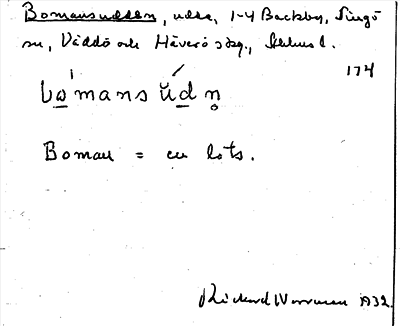 Bomansudden, udde, 1-4 Backby, Singö
sn, Väddö och Häverö skg., Sthlms l.
174
bomans udn̥
Boman = en lots.
Rickard Wornson 1932.